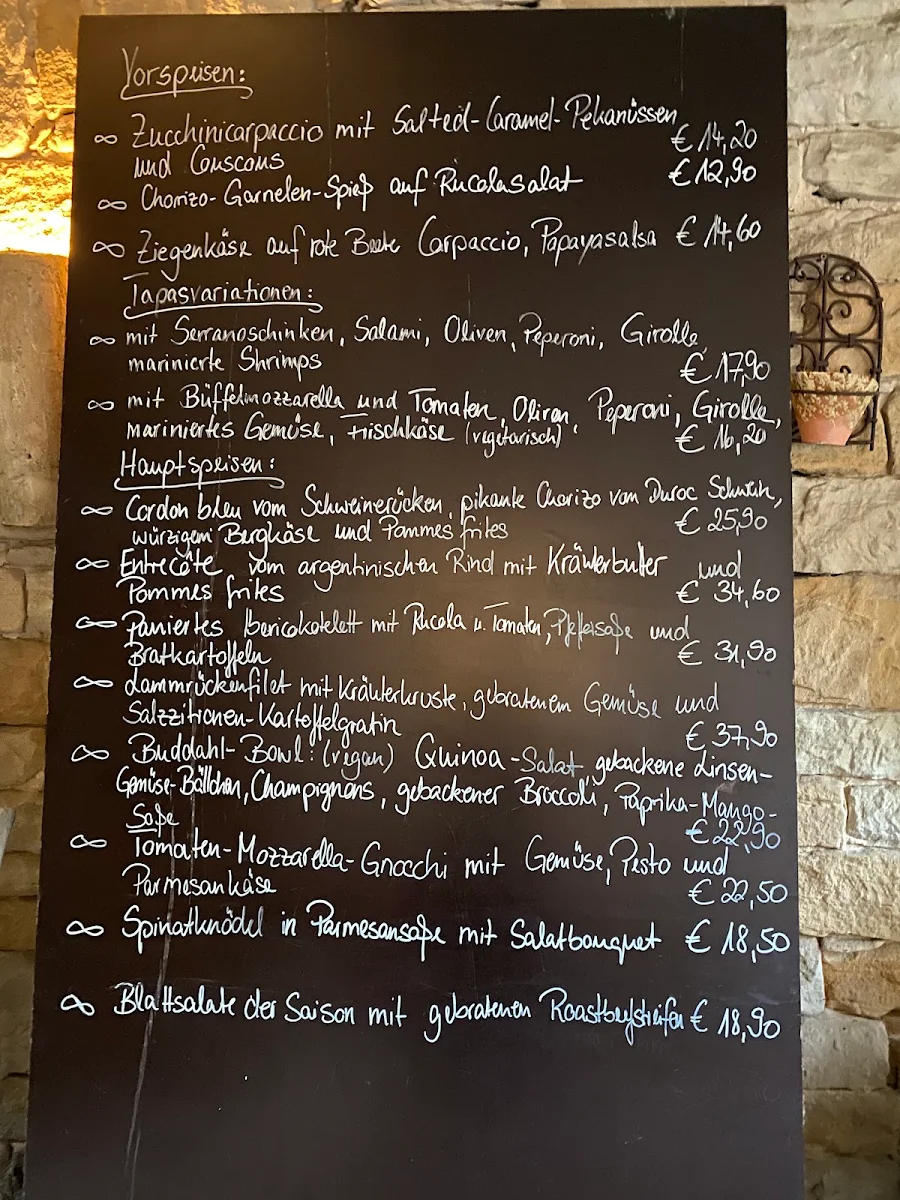 Vorspeisen:
∞ Zucchinicarpaccio mit Salted-Caramel-Pekanüssen
und Couscous € 14,20
∞ Chorizo-Garnelen-Spieß auf Rucolasalat € 12,90
∞ Ziegenkäse auf rote Beete Carpaccio, Papayasalsa € 14,60
Tapasvariationen:
∞ mit Serranoschinken, Salami, Oliven, Peperoni, Girolle,
marinierte Shrimps € 17,90
∞ mit Büffelmozzarella und Tomaten, Oliven, Peperoni, Girolle,
mariniertes Gemüse, Frischkäse (vegetarisch) € 16,20
Hauptspeisen:
∞ Cordon bleu vom Schweinerücken, pikante Chorizo vom Duroc Schwein,
würzigem Bergkäse und Pommes frites € 25,90
∞ Entrecôte vom argentinischen Rind mit Kräuterbutter und
Pommes frites € 34,60
∞ Paniertes Ibericokotelett mit Rucola u. Tomaten, Pfeffersoße und
Bratkartoffeln € 31,90
∞ Lammrückenfilet mit Kräuterkruste, gebratenem Gemüse und
Salzzitronen-Kartoffelgratin € 37,90
∞ Buddahl-Bowl: (vegan) Quinoa-Salat, gebackene Linsen-
Gemüse-Bällchen, Champignons, gebackener Broccoli, Paprika-Mango-
Soße € 22,90
∞ Tomaten-Mozzarella-Gnocchi mit Gemüse, Pesto und
Parmesankäse € 22,50
∞ Spinatknödel in Parmesansoße mit Salatbouquet € 18,50
∞ Blattsalate der Saison mit gebratenen Roastbeefstreifen € 18,90